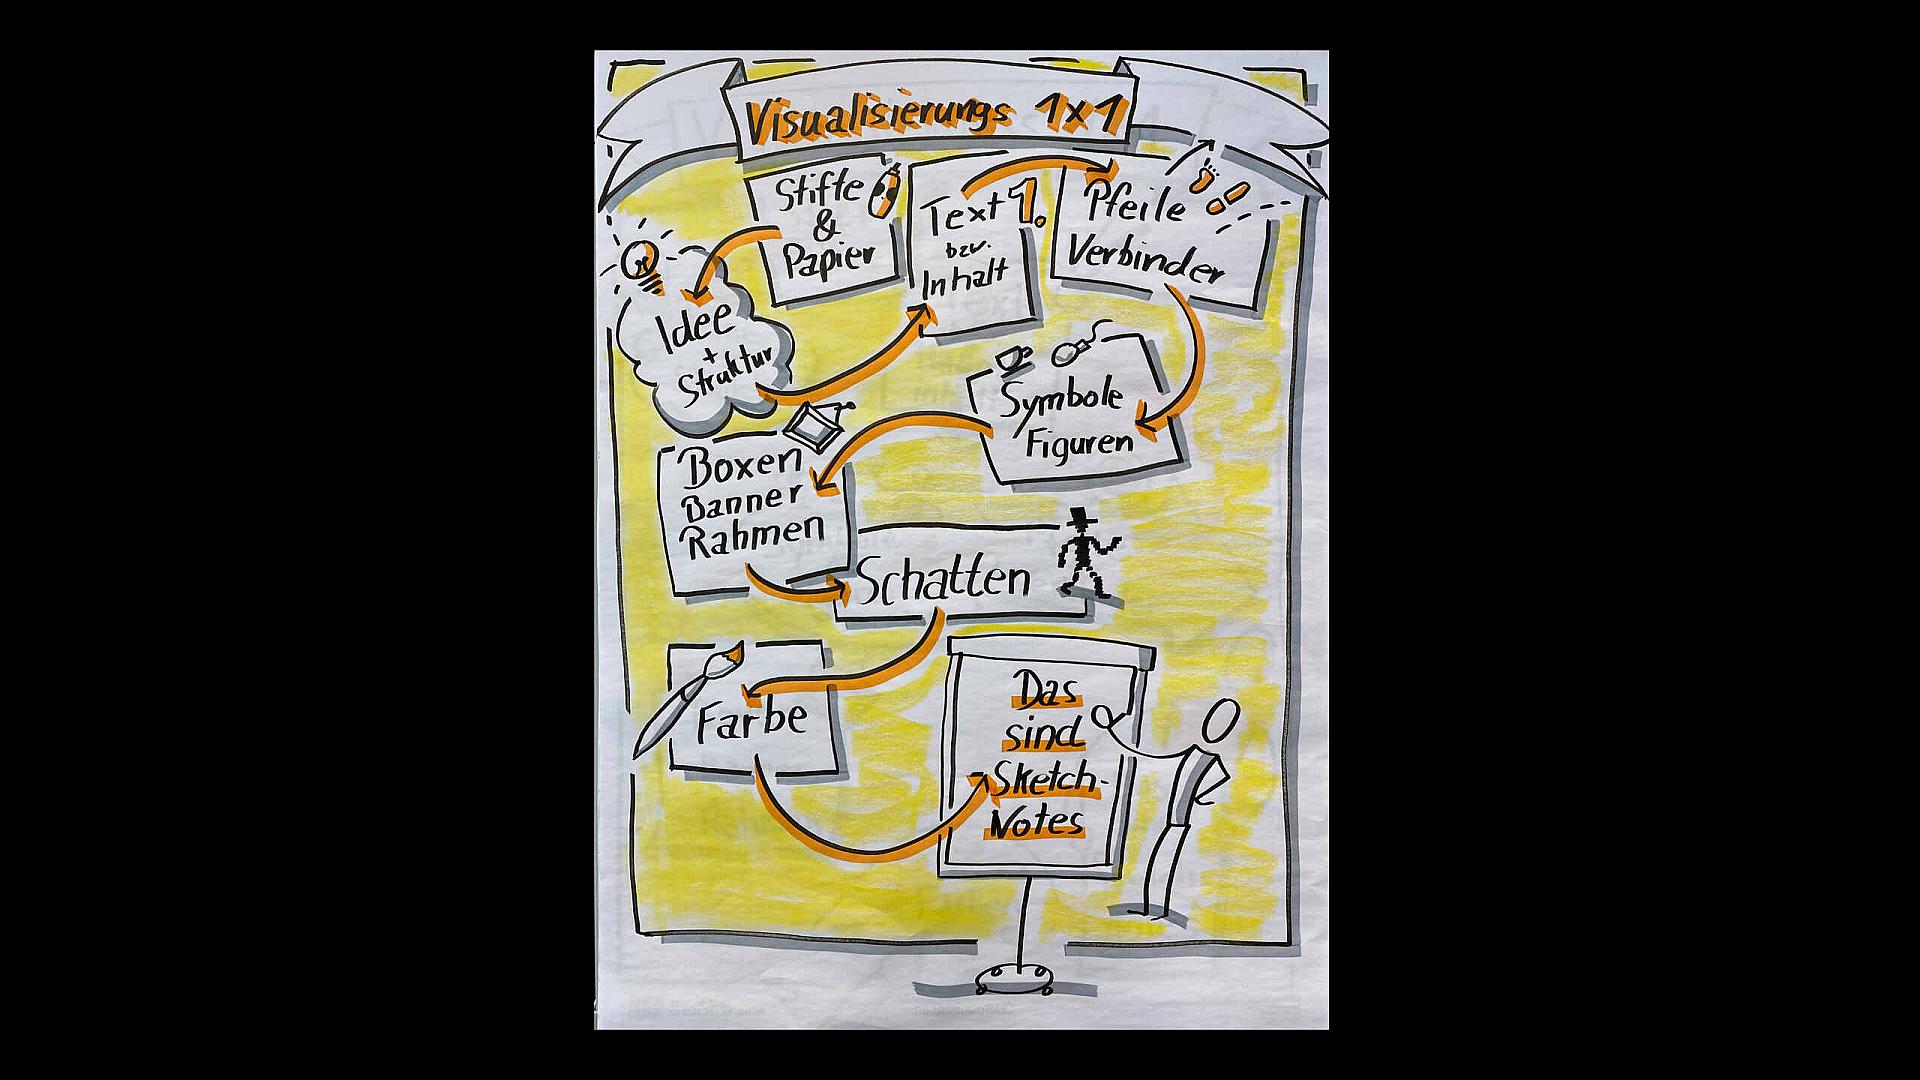 Visualisierungs 1x1
Stifte
&
Papier
Idee
+
Struktur
Text 1.
bzw.
Inhalt
Pfeile
Verbinder
Symbole
Figuren
Boxen
Banner
Rahmen
Schatten
Farbe
Das
sind
Sketch-
Notes